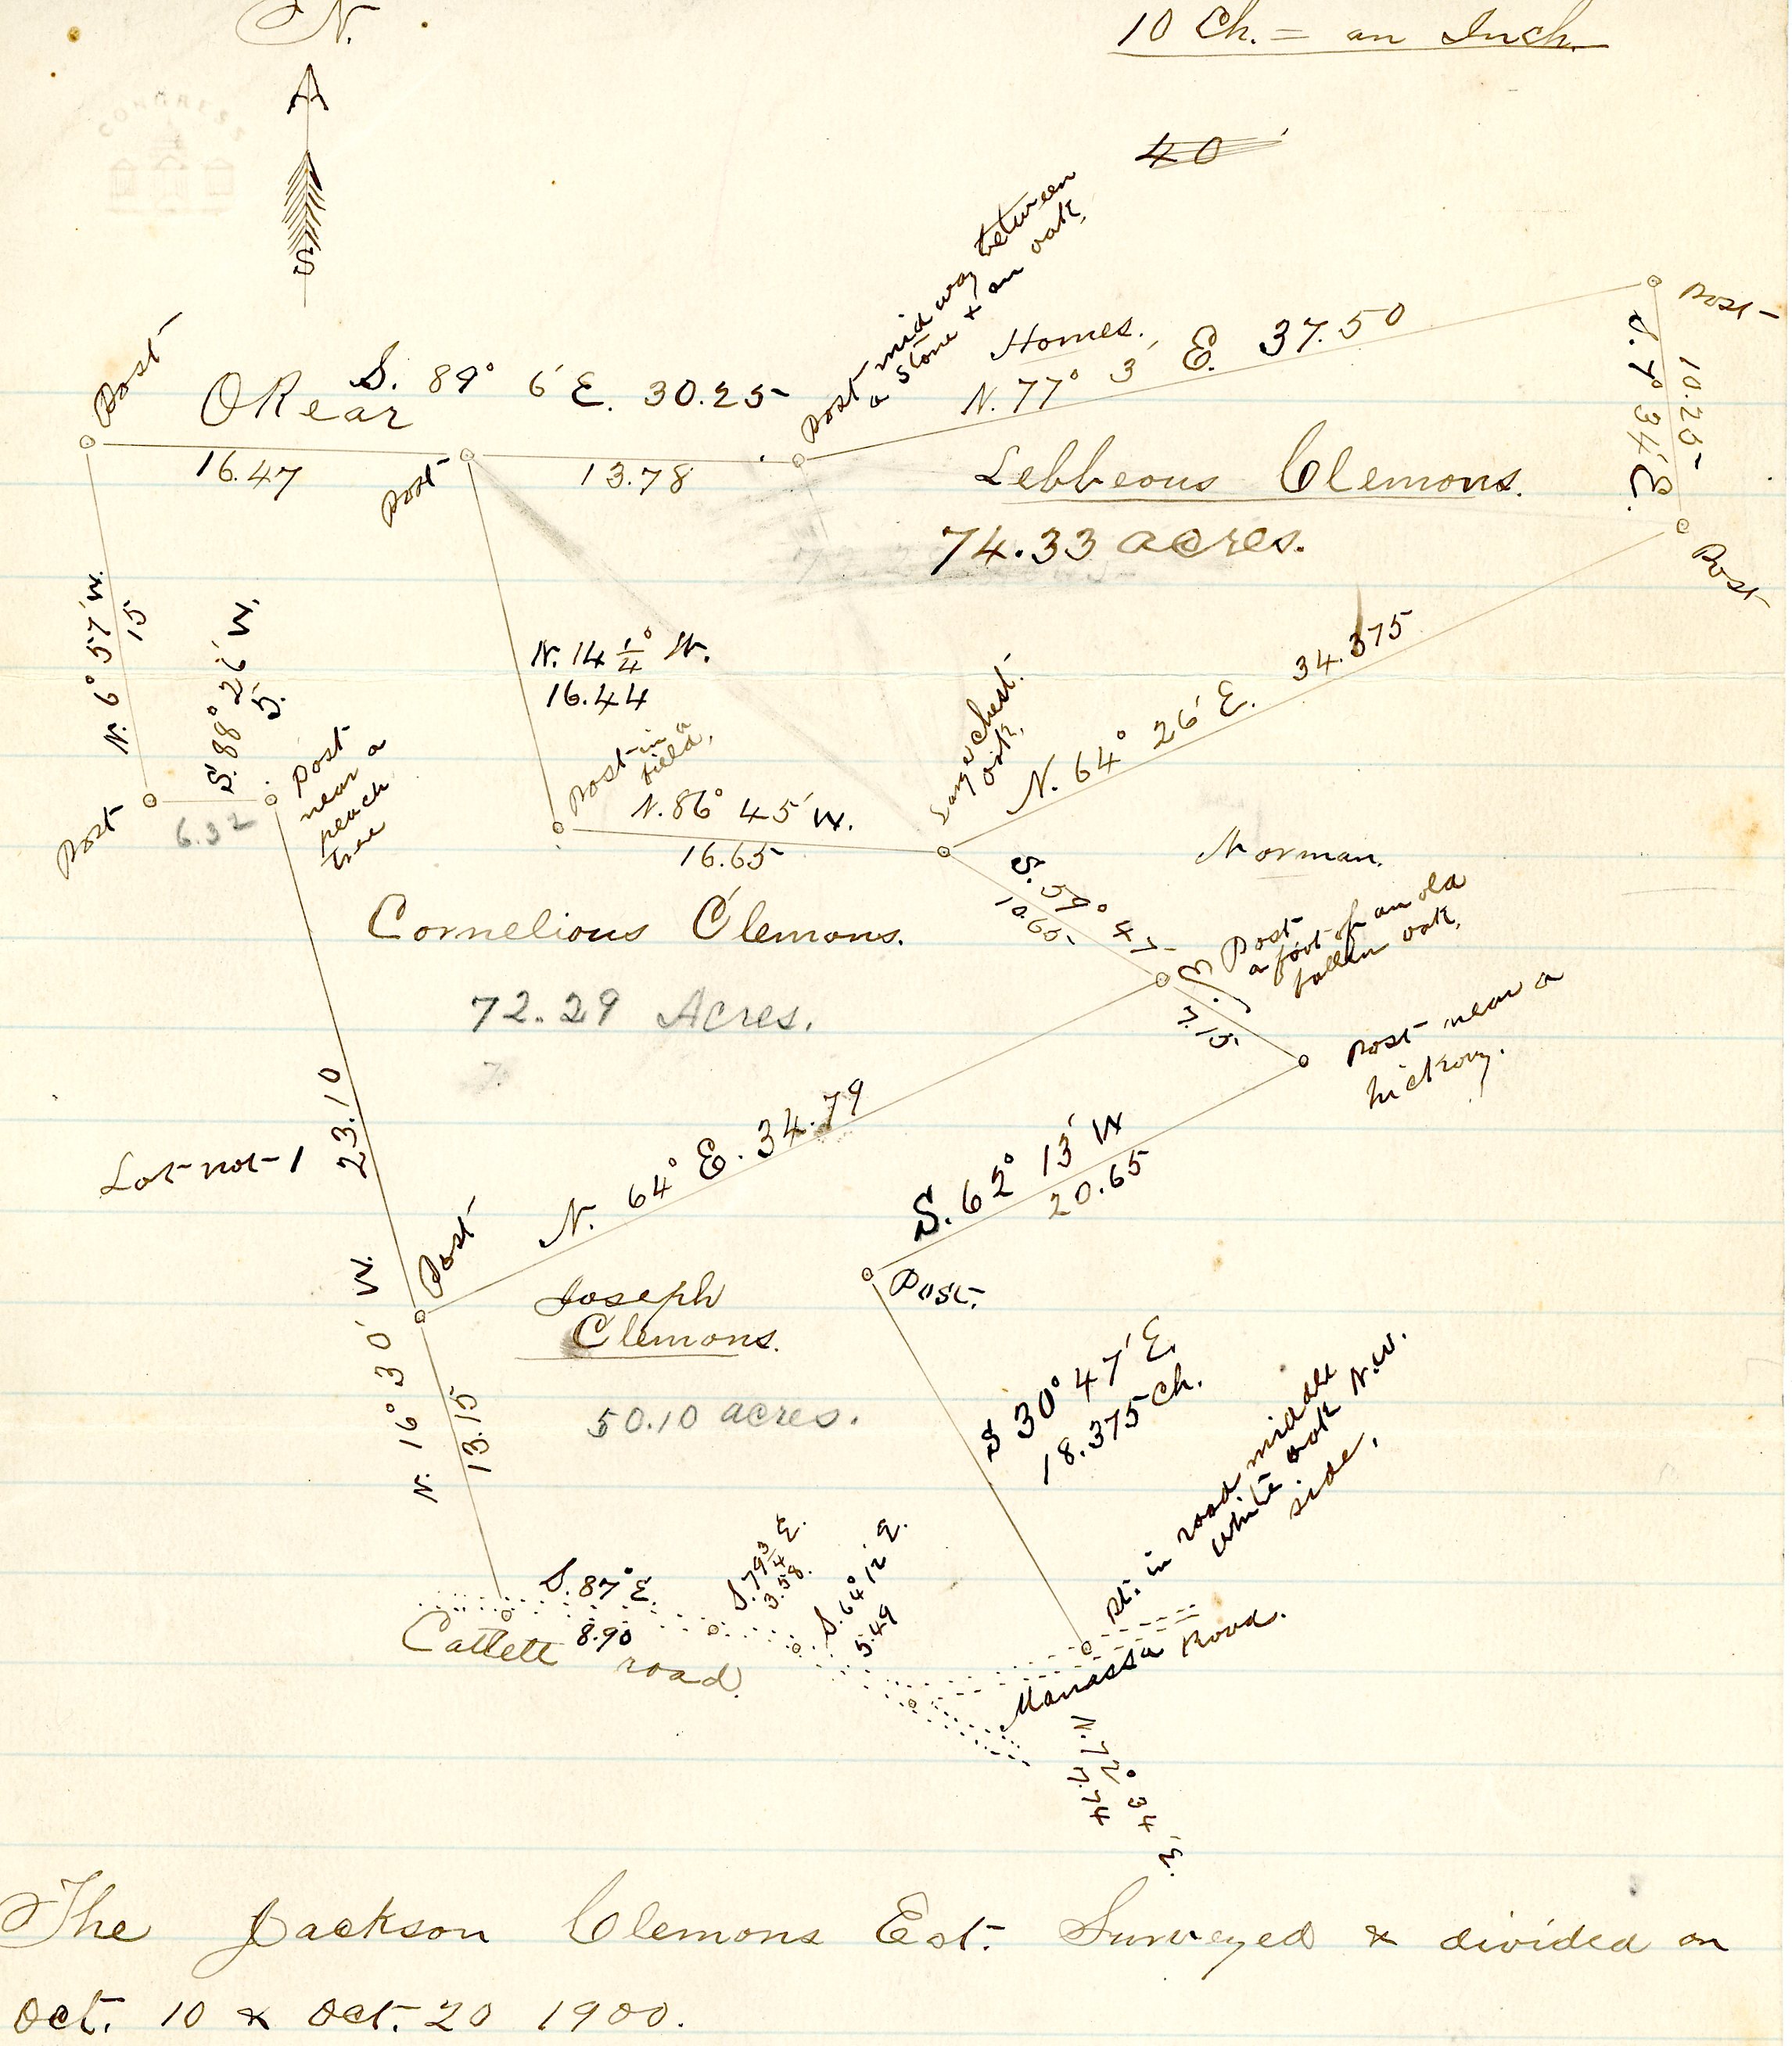 N.
10 Ch. = an Inch.
CONGRESS
40
S
Post
ORear
S. 89° 6' E. 30.25
Post mid way between
a stone + an oak.
Homes.
N. 77° 3' E. 37.50
Post
S. 7° 34' E.
10.25
16.47
Post
13.78
Lebbeous Clemons.
74.33 acres.
Post
N. 6° 57' W.
15
S. 88° 26' W.
5.
N. 14 1/4° W.
16.44
Post in a
field.
Large Chest.
oak.
N. 64° 26' E. 34.375
Post
6.32
Post
near a
peach
tree
N. 86° 45' W.
16.65
Norman.
S. 59° 47' E.
10.65
Post
a foot of an old
fallen oak.
Cornelious Clemons.
72.29 Acres.
7.
7.15
Post near a
hickory.
23.10
Lot not 1
N. 64° E. 34.79
S. 62° 13' W
20.65
Post
Post.
N. 16° 30' W.
Joseph
Clemons.
13.15
50.10 acres.
S 30° 47' E.
18.375 Ch.
pt. in road middle
white oak N.W.
side.
S. 87° E.
8.90
S. 79 3/4 E.
3.58.
S. 64° 12' E.
5.49
Cattett road.
Manassa Road.
N. 72° 34' E.
7.74
The Jackson Clemons Est. Surveyed & divided on
Oct. 10 & Oct. 20 1900.